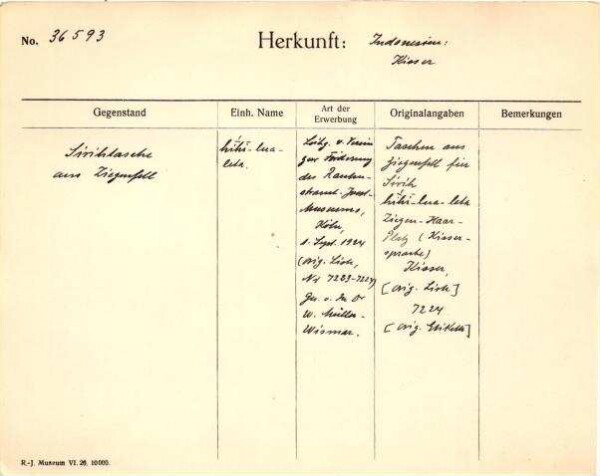 No. 36593
Herkunft: Indonesien:
Kisser
Gegenstand
Einh. Name
Art der
Erwerbung
Originalangaben
Bemerkungen
Sirihtasche
aus Ziegenfell
leta.
Lchg. v. Verein
zur Förderung
des Rauten-
strauch-Joest-
Museums,
Köln,
1. Sept. 1924
(orig. Liste,
No 7223-7224)
Ges. v. 
W. Müller-
Wismar.
Taschen aus
Ziegenfell für
Sirih
Ziegen-Haar-
(Kisser-
sprache)
Kisser,
[orig. Liste]
7224
[orig. Etikett]
R.-J. Museum VI. 26. 10000.